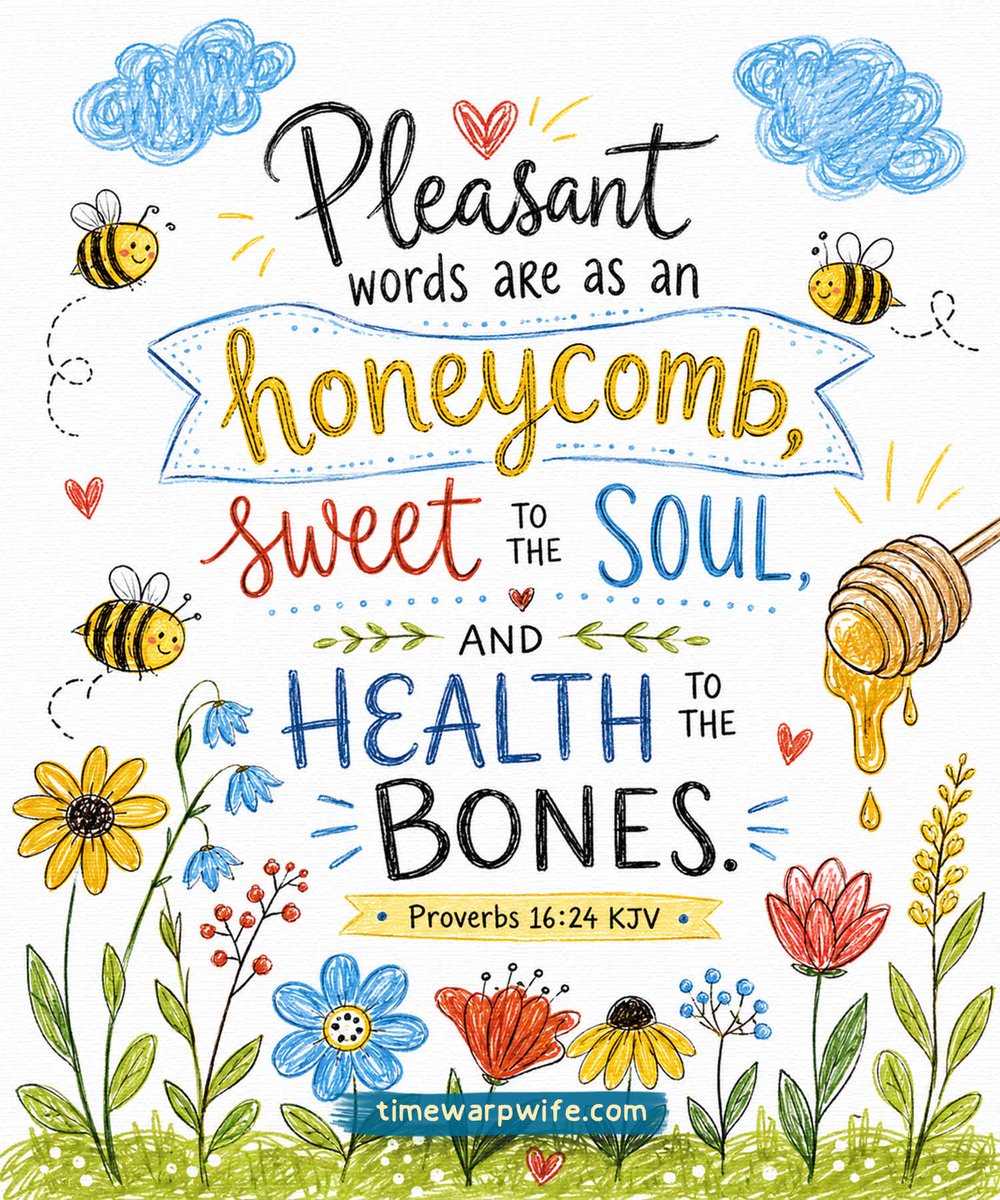 Pleasant
words are as an
honeycomb,
sweet TO THE SOUL,
AND
HEALTH TO THE
BONES.
Proverbs 16:24 KJV
timewarpwife.com